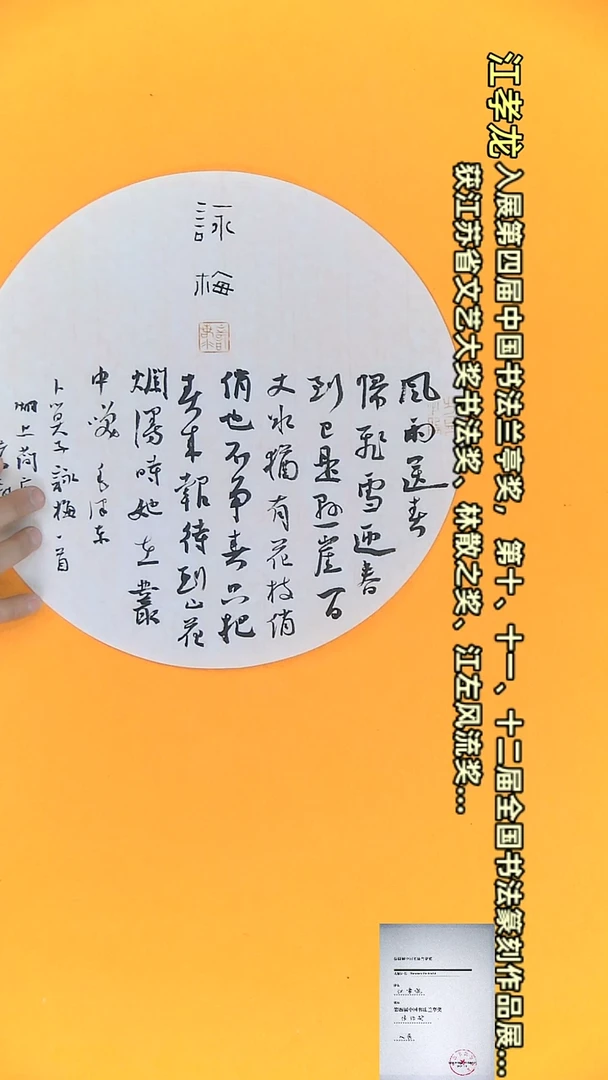 江孝龙 入展第四届中国书法兰亭奖，第十、十一、十二届全国书法篆刻作品展...
获江苏省文艺大奖书法奖、林散之奖、江左风流奖...
詠梅
風雨送春
歸飛雪迎春
到已是懸崖百
丈冰猶有花枝俏
俏也不争春只把
春来報待到山花
爛漫時她在叢
中笑 毛泽东
卜算子詠梅一首
湖上